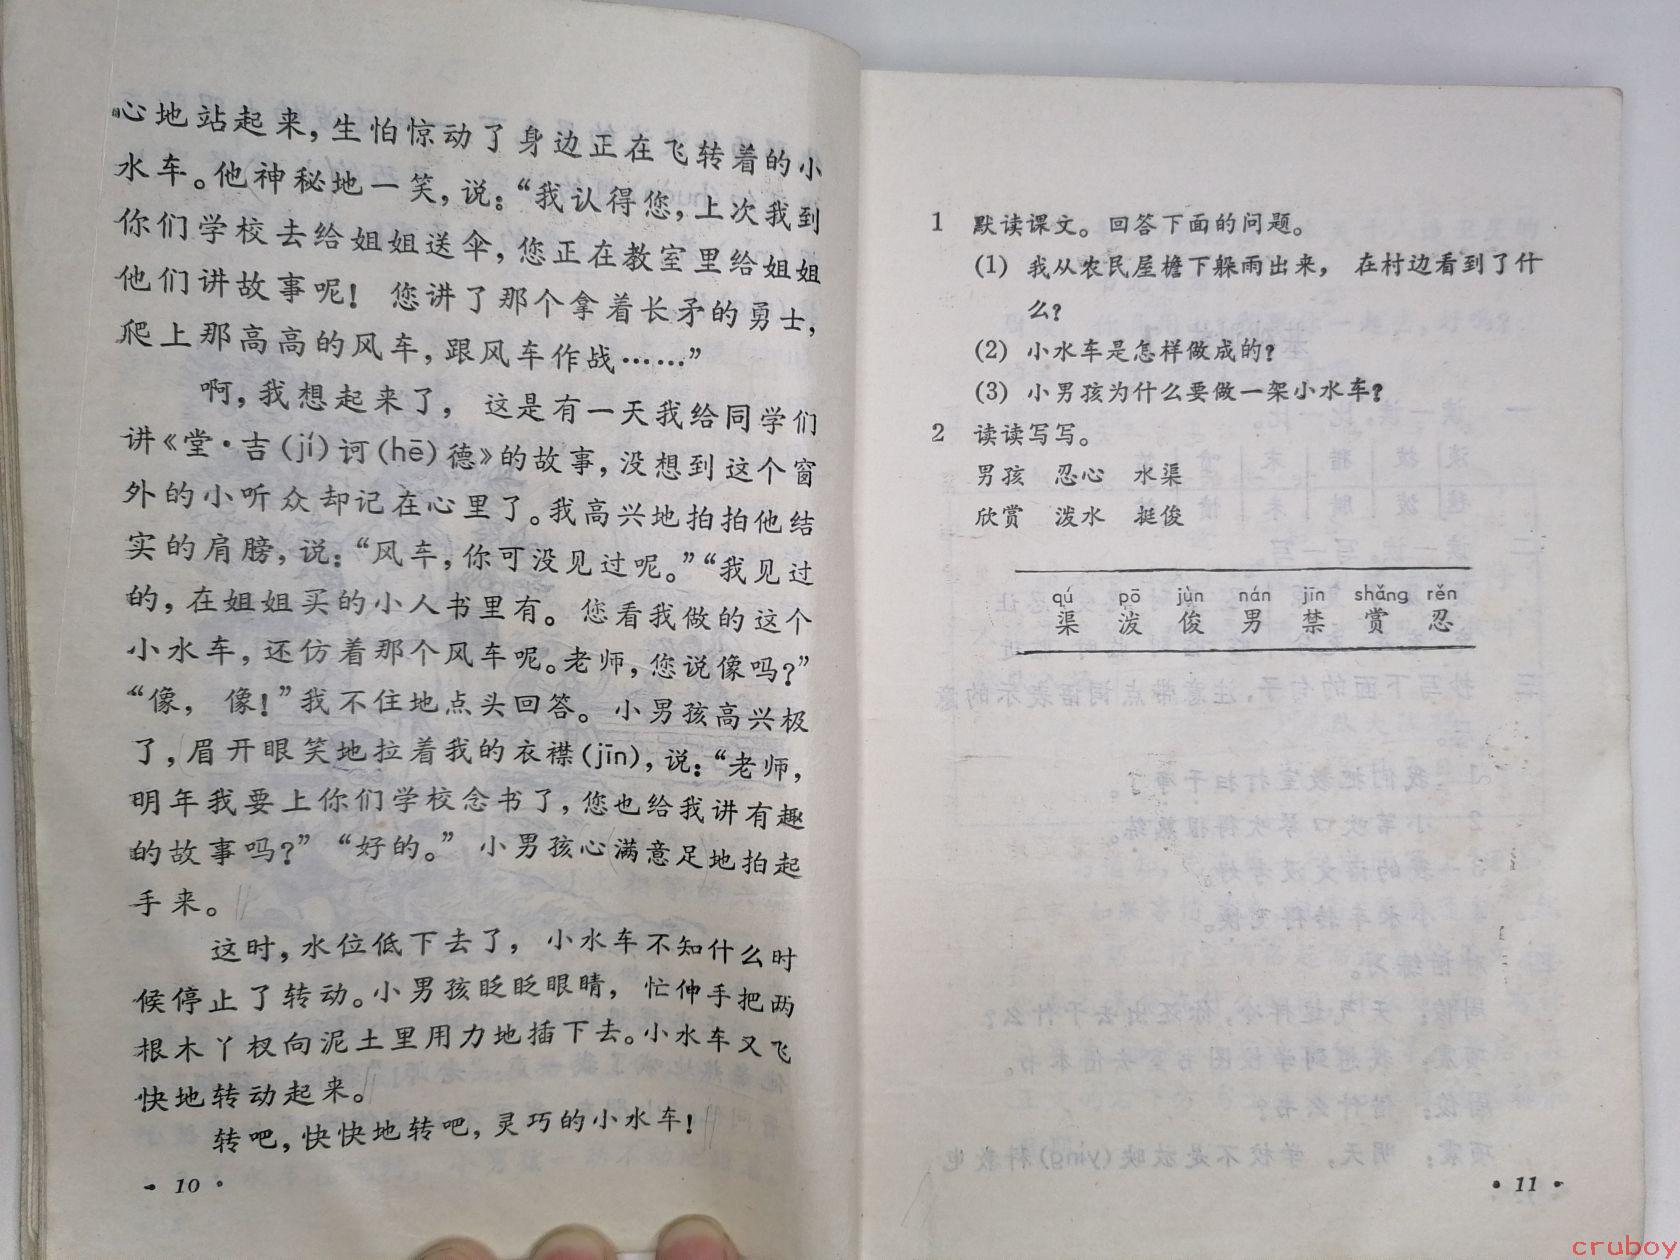 心地站起来，生怕惊动了身边正在飞转着的小
水车。他神秘地一笑，说：“我认得您，上次我到
你们学校去给姐姐送伞，您正在教室里给姐姐
他们讲故事呢！您讲了那个拿着长矛的勇士，
爬上那高高的风车，跟风车作战……”
啊，我想起来了，这是有一天我给同学们
讲《堂·吉(jí)诃(hē)德》的故事，没想到这个窗
外的小听众却记在心里了。我高兴地拍拍他结
实的肩膀，说：“风车，你可没见过呢。”“我见过
的，在姐姐买的小人书里有。您看我做的这个
小水车，还仿着那个风车呢。老师，您说像吗？”
“像，像！”我不住地点头回答。小男孩高兴极
了，眉开眼笑地拉着我的衣襟(jīn)，说：“老师，
明年我要上你们学校念书了，您也给我讲有趣
的故事吗？”“好的。”小男孩心满意足地拍起
手来。
这时，水位低下去了，小水车不知什么时
候停止了转动。小男孩眨眨眼睛，忙伸手把两
根木丫杈向泥土里用力地插下去。小水车又飞
快地转动起来。
转吧，快快地转吧，灵巧的小水车！
·10·
1 默读课文。回答下面的问题。
(1) 我从农民屋檐下躲雨出来，在村边看到了什
么？
(2) 小水车是怎样做成的？
(3) 小男孩为什么要做一架小水车？
2 读读写写。
男孩 忍心 水渠
欣赏 泼水 挺俊
qú pō jùn nán jīn shǎng rěn
渠 泼 俊 男 禁 赏 忍
·11·
cruboy